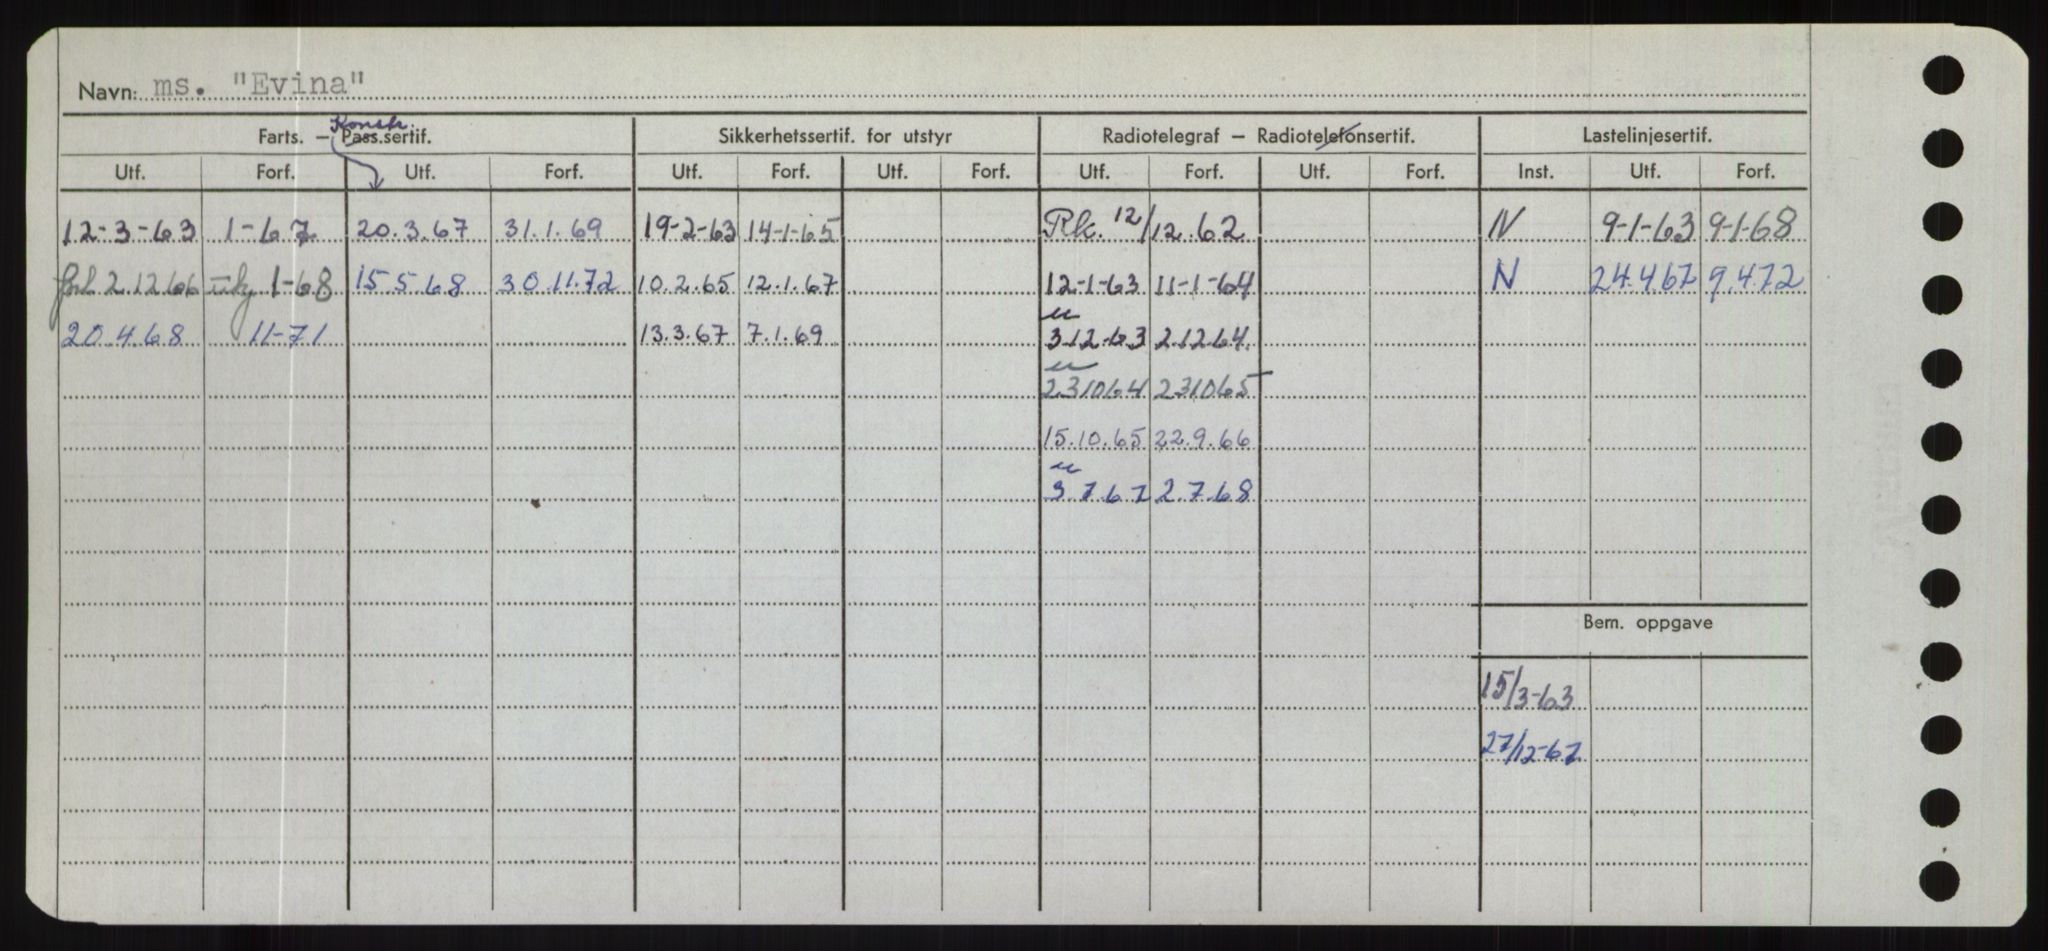 Navn: ms. "Evina"
Farts. — Pass.sertif. Konstr. Sikkerhetssertif. for utstyr Radiotelegraf — Radiotelefonsertif. Lastelinjesertif.
Utf. Forf. Utf. Forf. Utf. Forf. Utf. Forf. Utf. Forf. Utf. Forf. Inst. Utf. Forf.
12-3-63 1-67 20.3.67 31.1.69 19-2-63 14-1-65 Rk. 12/12.62 N 9-1-63 9-1-68
2.12.66 1-68 15.5.68 30.11.72 10.2.65 12.1.67 12-1-63 11-1-64 N 24.4.67 9.4.72
20.4.68 11-71 13.3.67 7.1.69 3.12-63 2.12.64.
23.10.64 23.10.65
15.10.65 22.9.66
3.7.67 2.7.68
Bem. oppgave
15/3-63
27/12-67